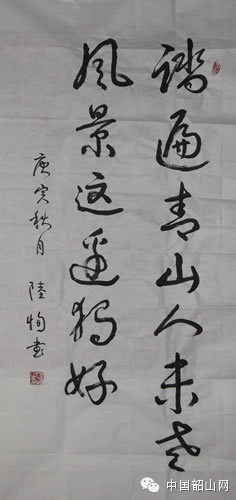 踏遍青山人未老
风景这边独好
庚寅秋月 陸恂书
中国韶山网